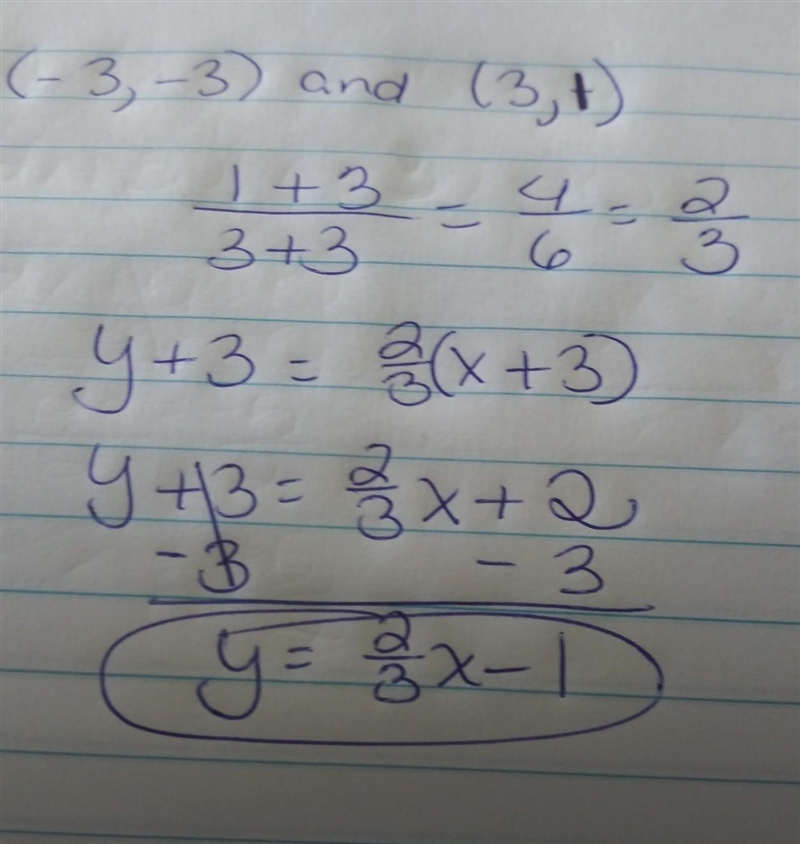 (-3, -3) and (3, 1)
1 + 3 = 4 = 2
3 + 3   6   3
y + 3 = 2/3 (x + 3)
y + 3 = 2/3 x + 2
- 3 - 3
y = 2/3 x - 1